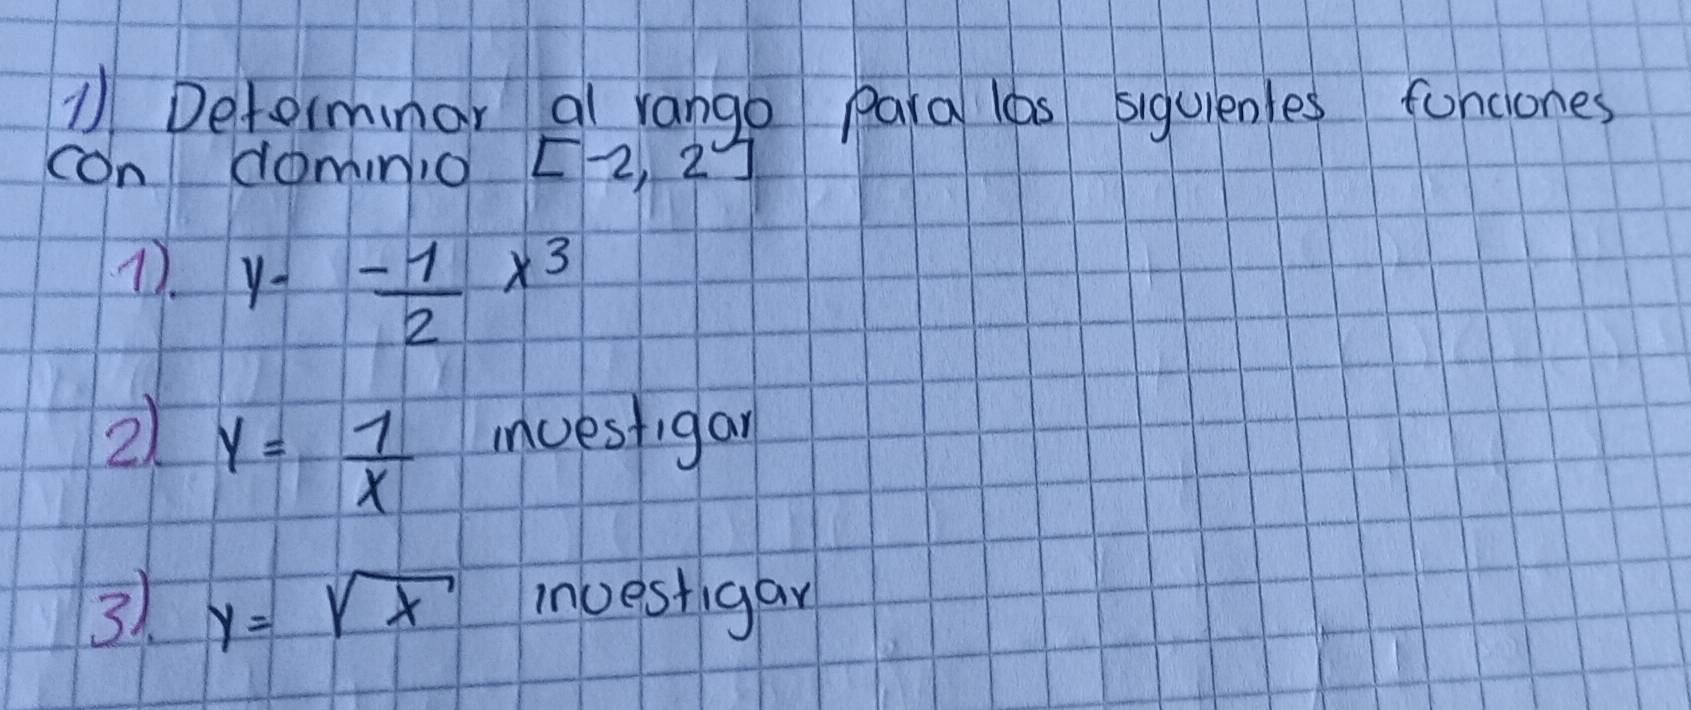 1) Determinar al rango para las siguientes funciones
con dominio [-2, 2]
1). y- -1/2 x³
2) y = 1/x investigar
3). y = √x investigar